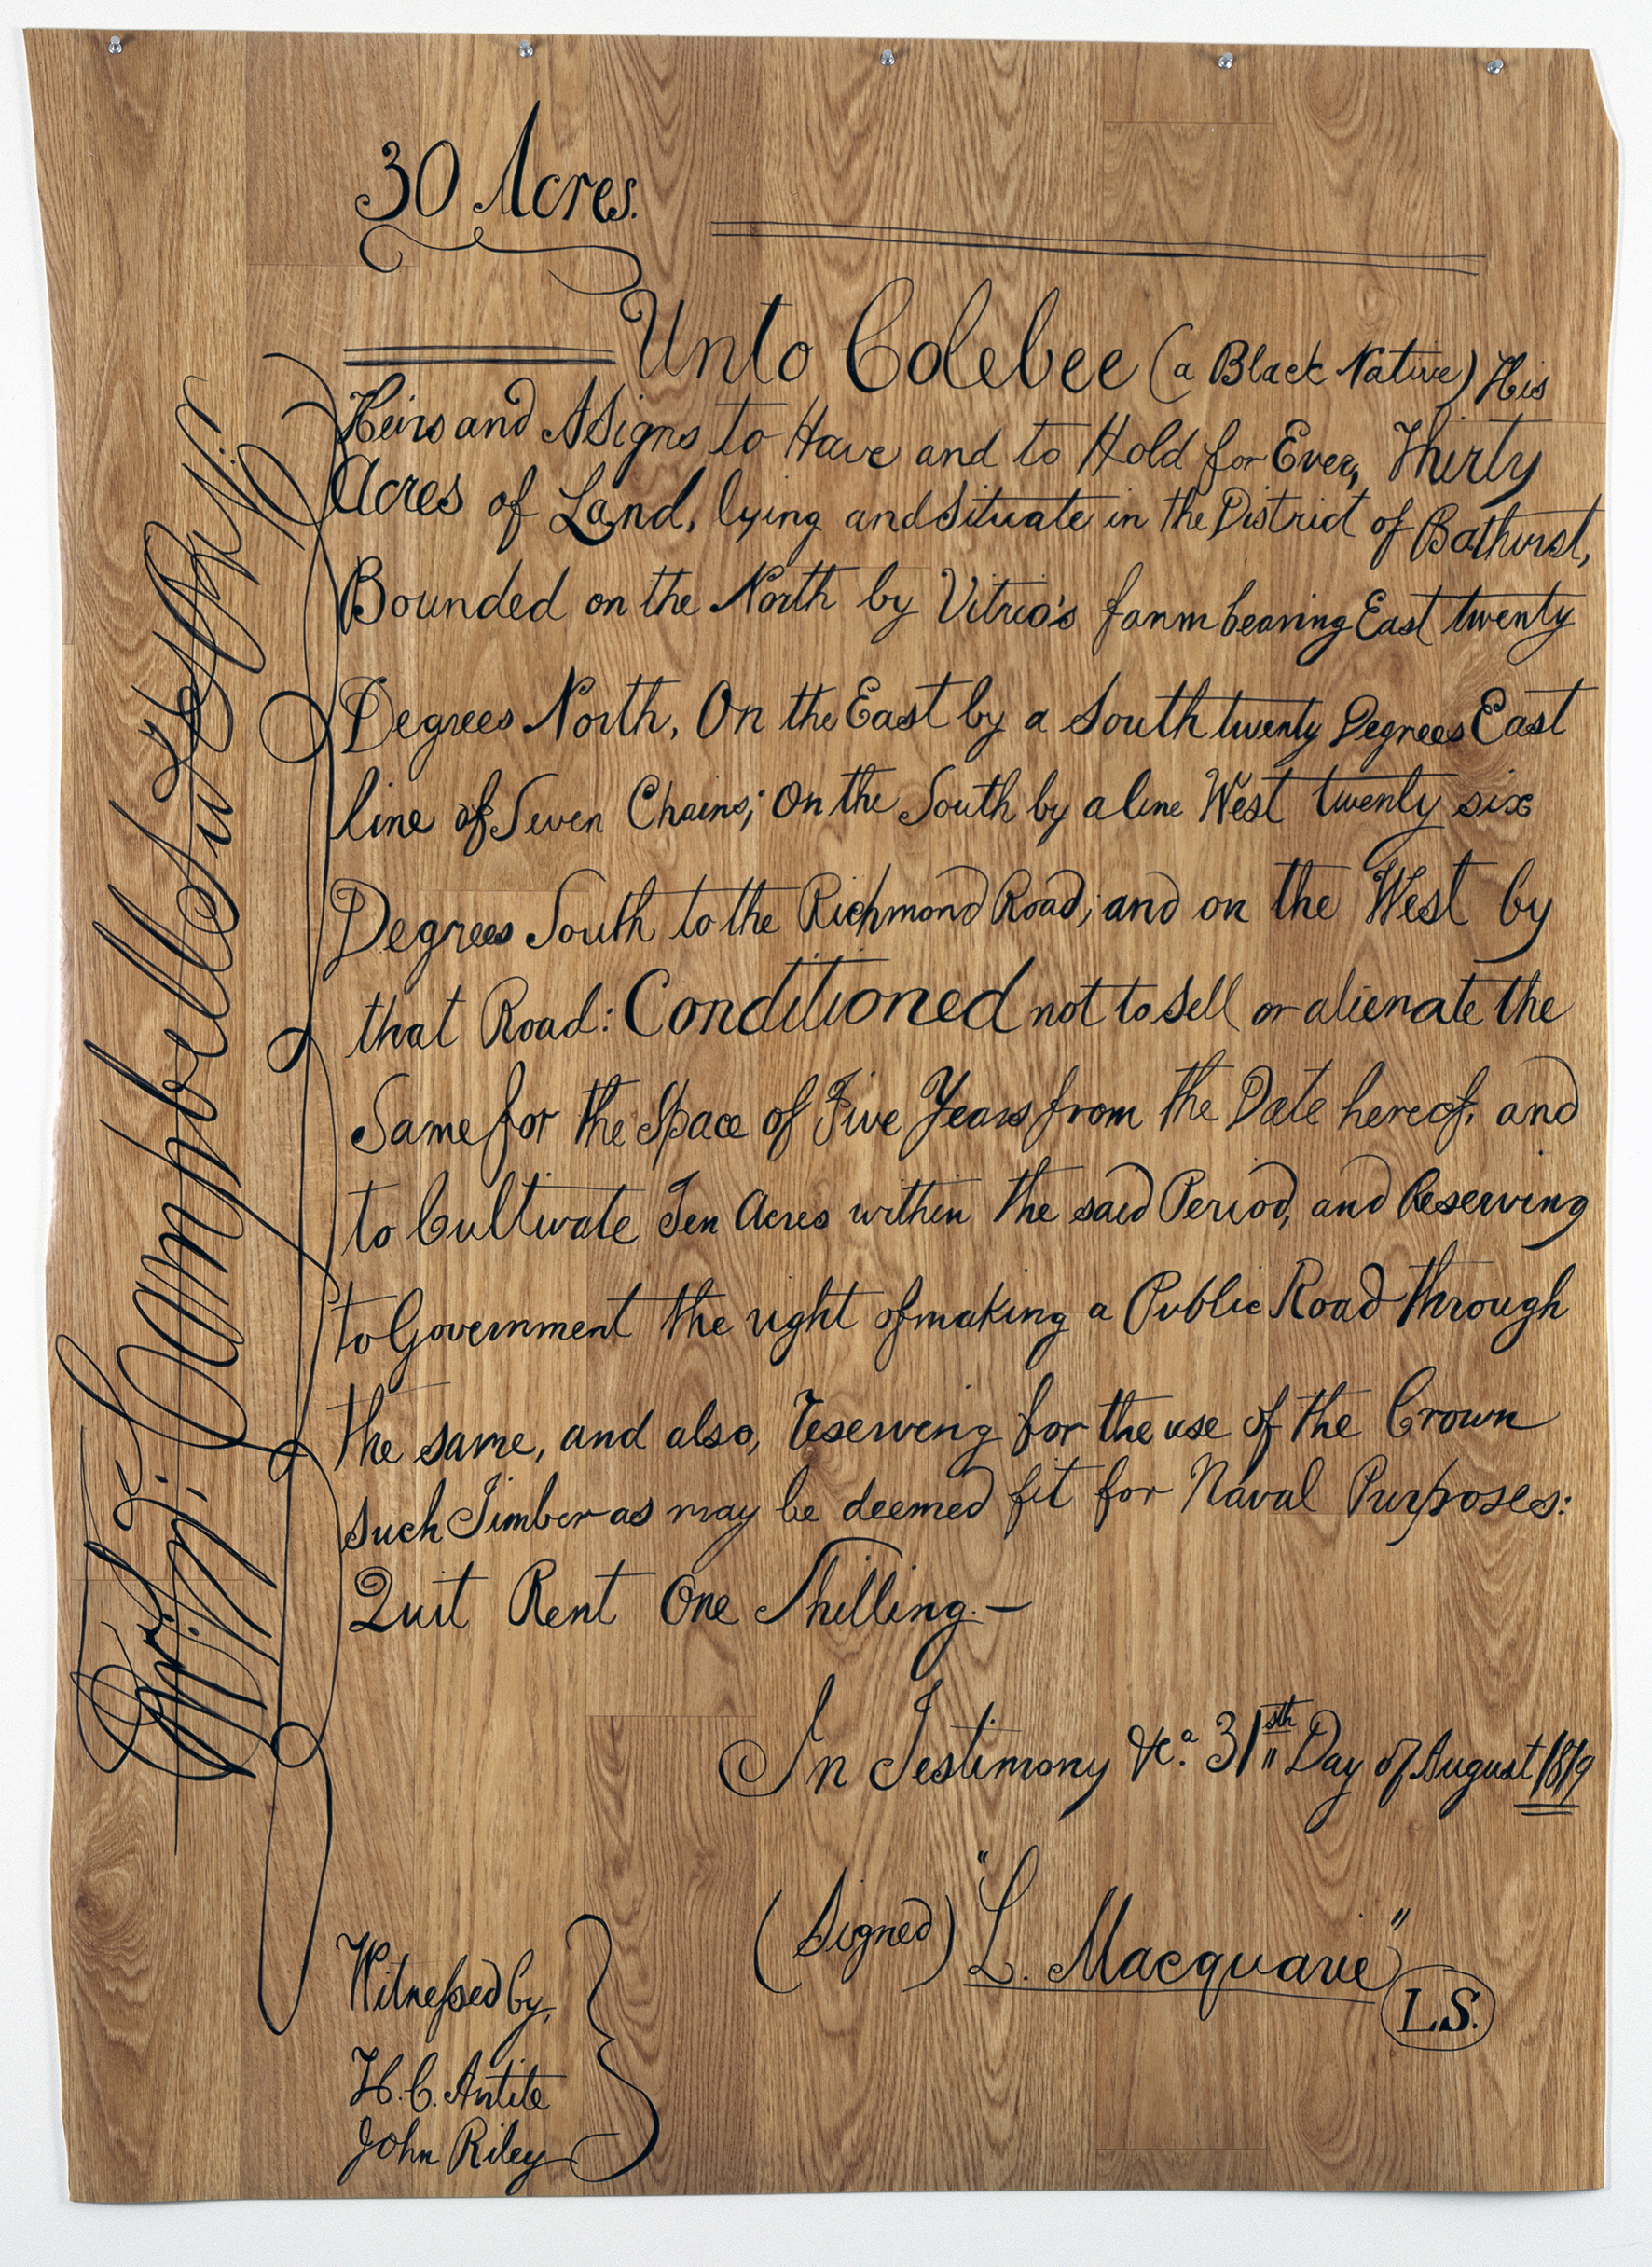 30 Acres.
Unto Colebee (a Black Native) His
Heirs and Assigns to Have and to Hold for Ever, Thirty
Acres of Land, lying and Situate in the District of Bathurst,
Bounded on the North by Vitrio's farm bearing East twenty
Degrees North, On the East by a South twenty Degrees East
line of Seven Chains; On the South by a line West twenty six
Degrees South to the Richmond Road; and on the West by
that Road: Conditioned not to Sell or alienate the
Same for the Space of Five Years from the Date hereof, and
to Cultivate Ten Acres within the said Period, and Reserving
to Government the right of making a Public Road through
the same, and also, reserving for the use of the Crown
such Timber as may be deemed fit for Naval Purposes:
Quit Rent One Shilling.—
In Testimony &c.a 31sth Day of August 1819
(Signed) "L. Macquarie"
L.S.
Witnessed by,
H.C. Antite
John Riley
J. Campbell